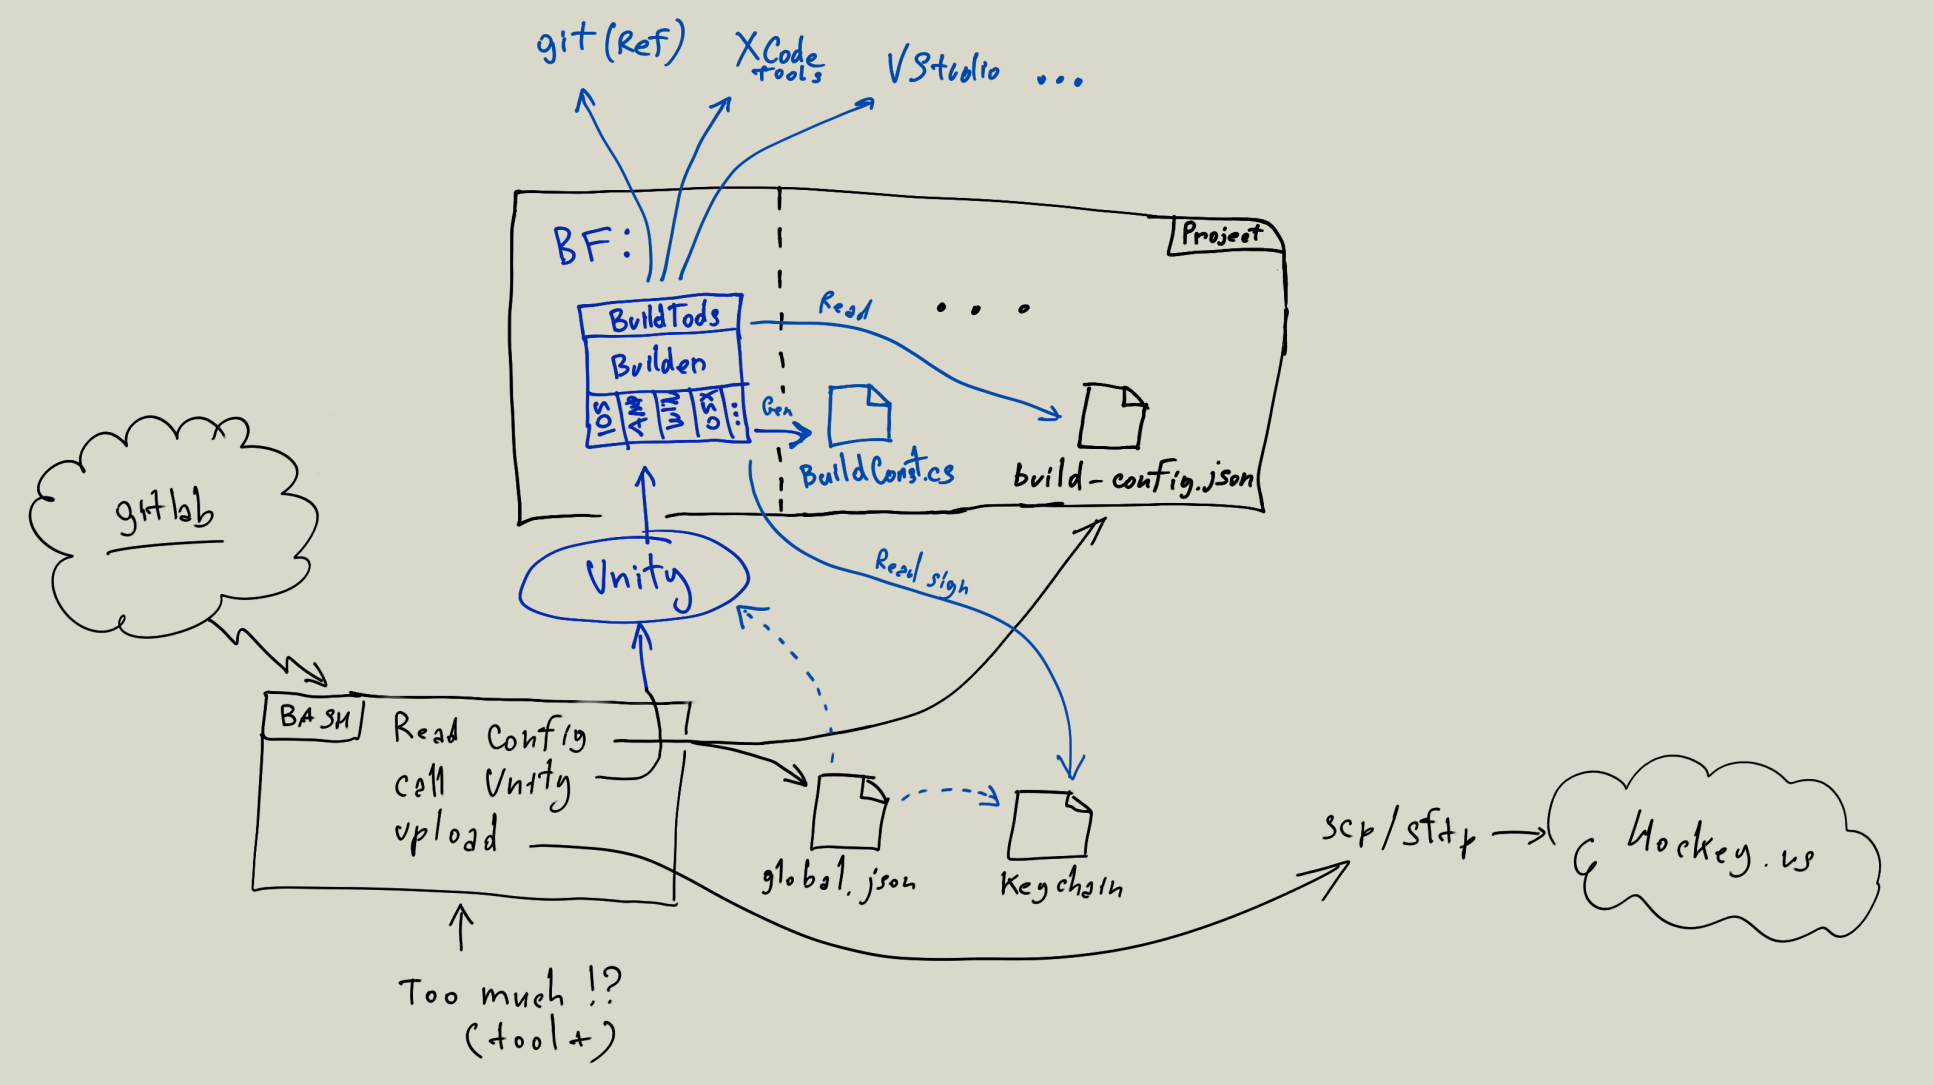 git (Ref)
XCode
Tools
VStudio ...
BF:
Project
BuildTools
Read
...
Builder
iOS
WIN
OSX
...
Gen
BuildConst.cs
build-config.json
gitlab
Unity
Read sign
BASH
Read Config
call Unity
upload
global.json
Keychain
scp/sftp
Hockey.us
Too much !?
(tool+)